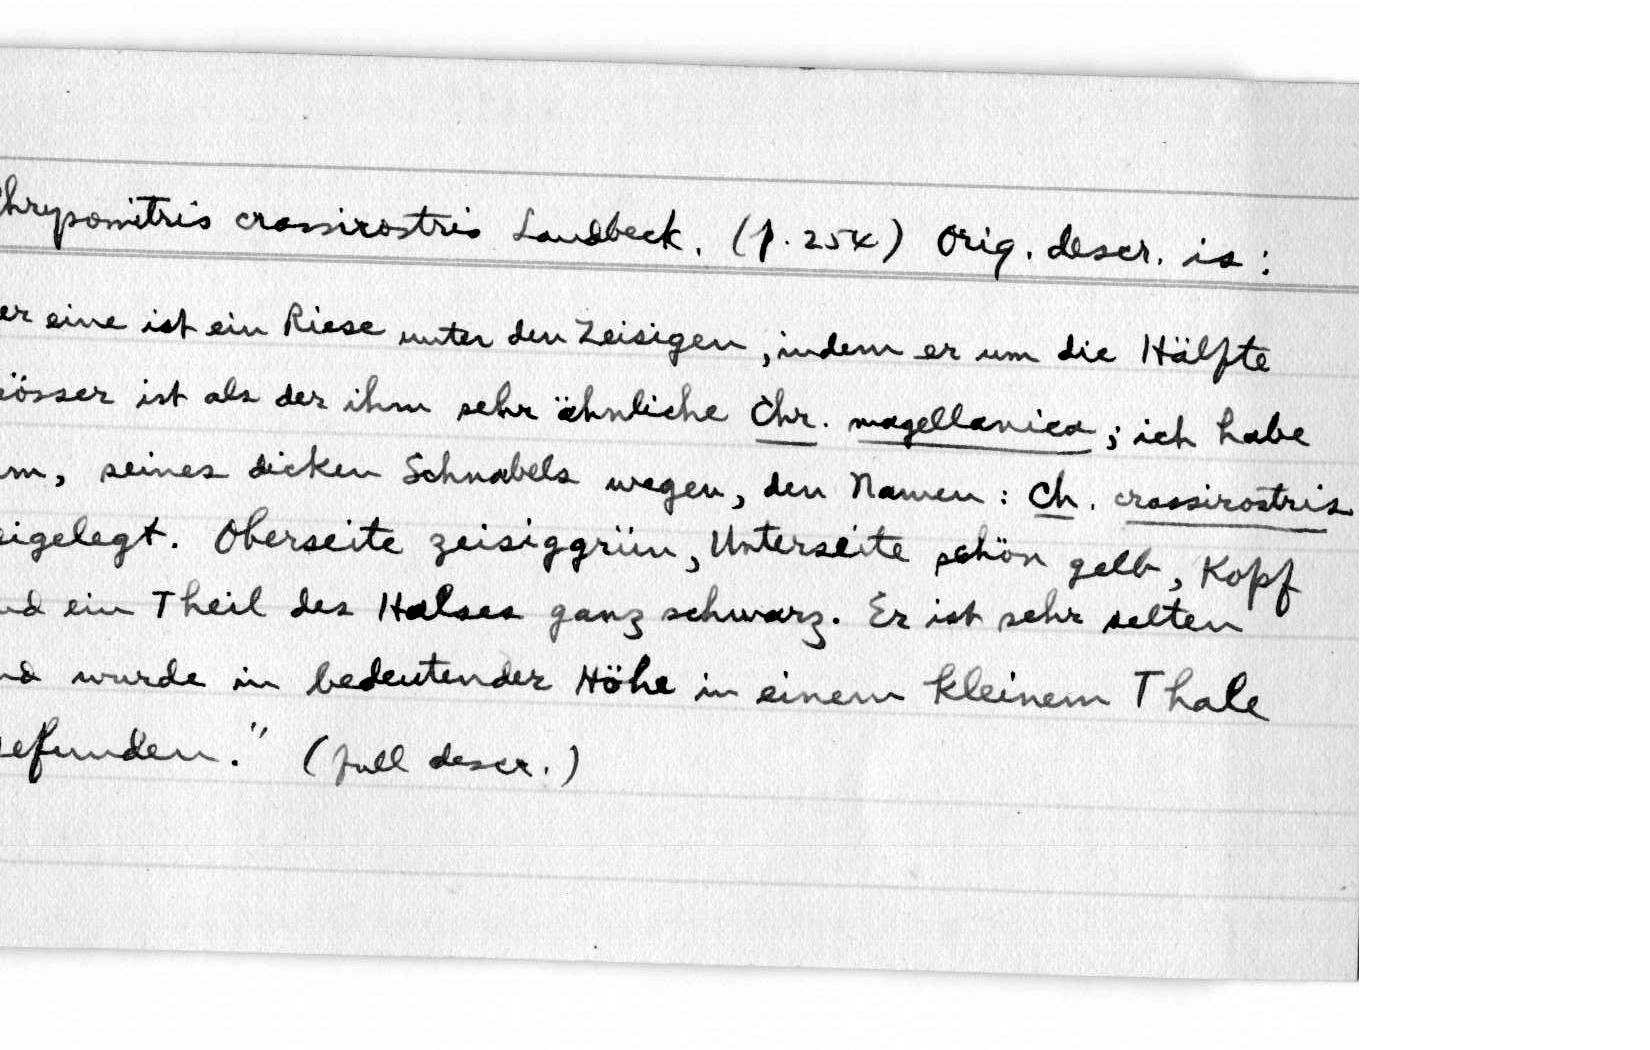 Chrysomitris crassirostris Landbeck. (p. 254) Orig. descr. is:
er eine ist ein Riese unter den Zeisigen, indem er um die Hälfte
össer ist als der ihm sehr ähnliche Chr. magellanica; ich habe
m, seines dicken Schnabels wegen, den Namen: Ch. crassirostris
eigelegt. Oberseite zeisiggrün, Unterseite schön gelb, Kopf
nd ein Theil des Halses ganz schwarz. Er ist sehr selten
nd wurde in bedeutender Höhe in einem kleinem Thale
efunden." (full descr.)